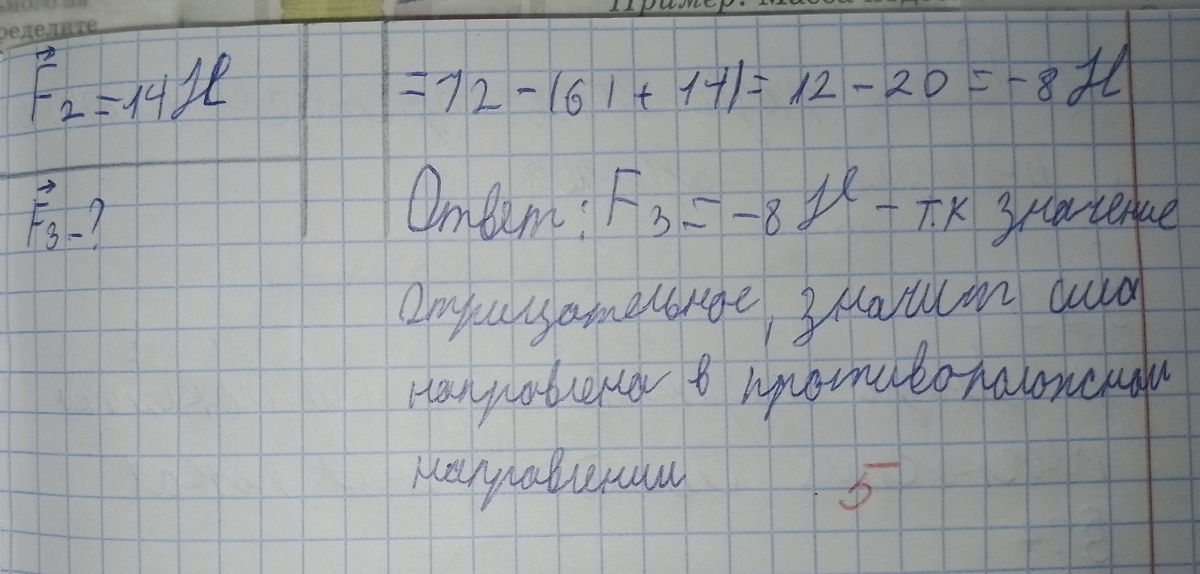 ределите
F₂ = 14 Н
= 12 - (6) + 14) = 12 - 20 = -8 Н
F₃ - ?
Ответ: F₃ = -8 Н - т.к значение
отрицательное, значит сила
направлена в противоположном
направлении
5